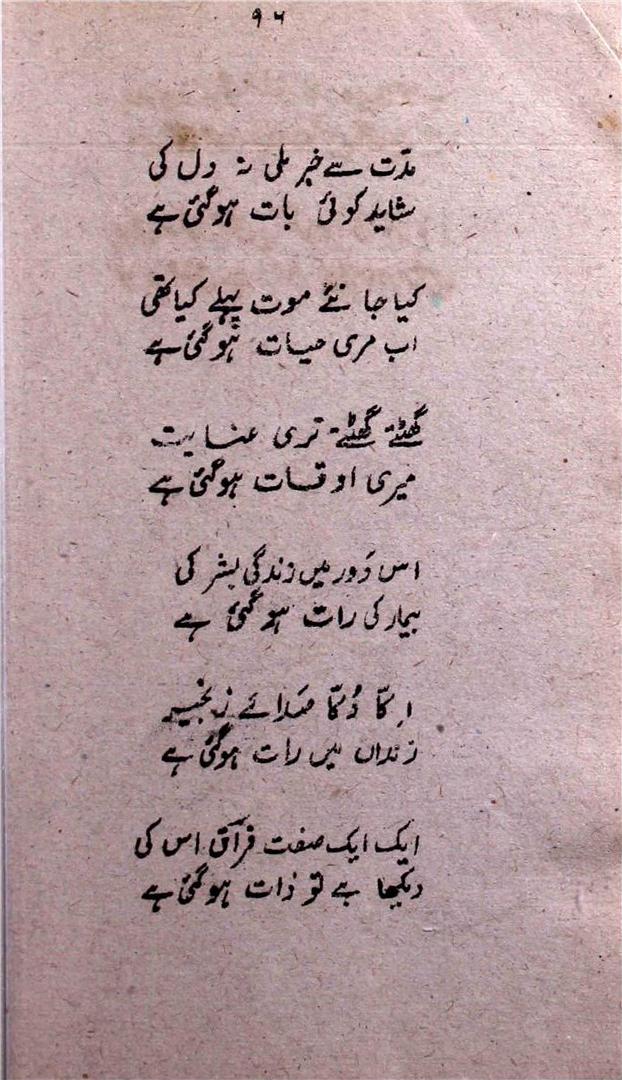 ۹۶
مدّت سے خبر ملی نہ دل کی
شاید کوئی بات ہوگئی ہے
کیا جانئے موت پہلے کیا تھی
اب مری حیات ہوگئی ہے
گھٹتے گھٹتے تری عنایت
میری اوقات ہوگئی ہے
اس دَور میں زندگی بشر کی
بیمار کی رات ہوگئی ہے
اِکّا دُکّا صَدائے زنجیر
زنداں میں رات ہوگئی ہے
ایک ایک صفت فراق اس کی
دیکھا ہے تو ذات ہوگئی ہے